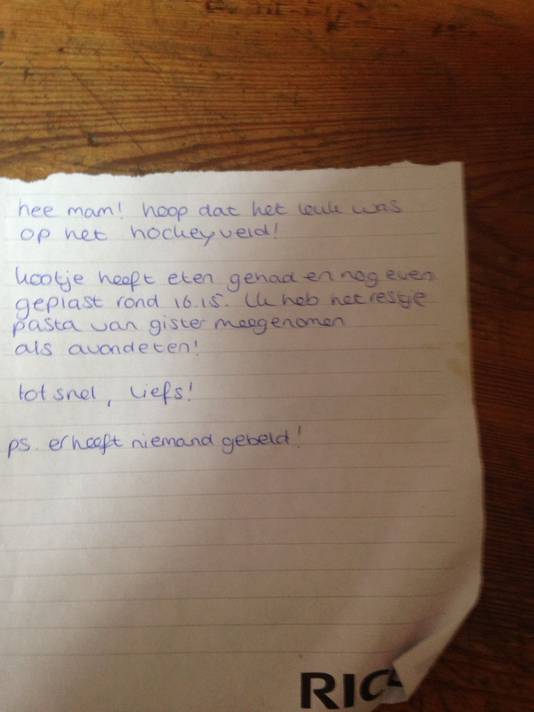 hee mam! hoop dat het leuk was
op het hockeyveld!
Kootje heeft eten gehad en nog even
geplast rond 16.15. Ik heb het restje
pasta van gister meegenomen
als avondeten!
tot snel, liefs!
ps. er heeft niemand gebeld!